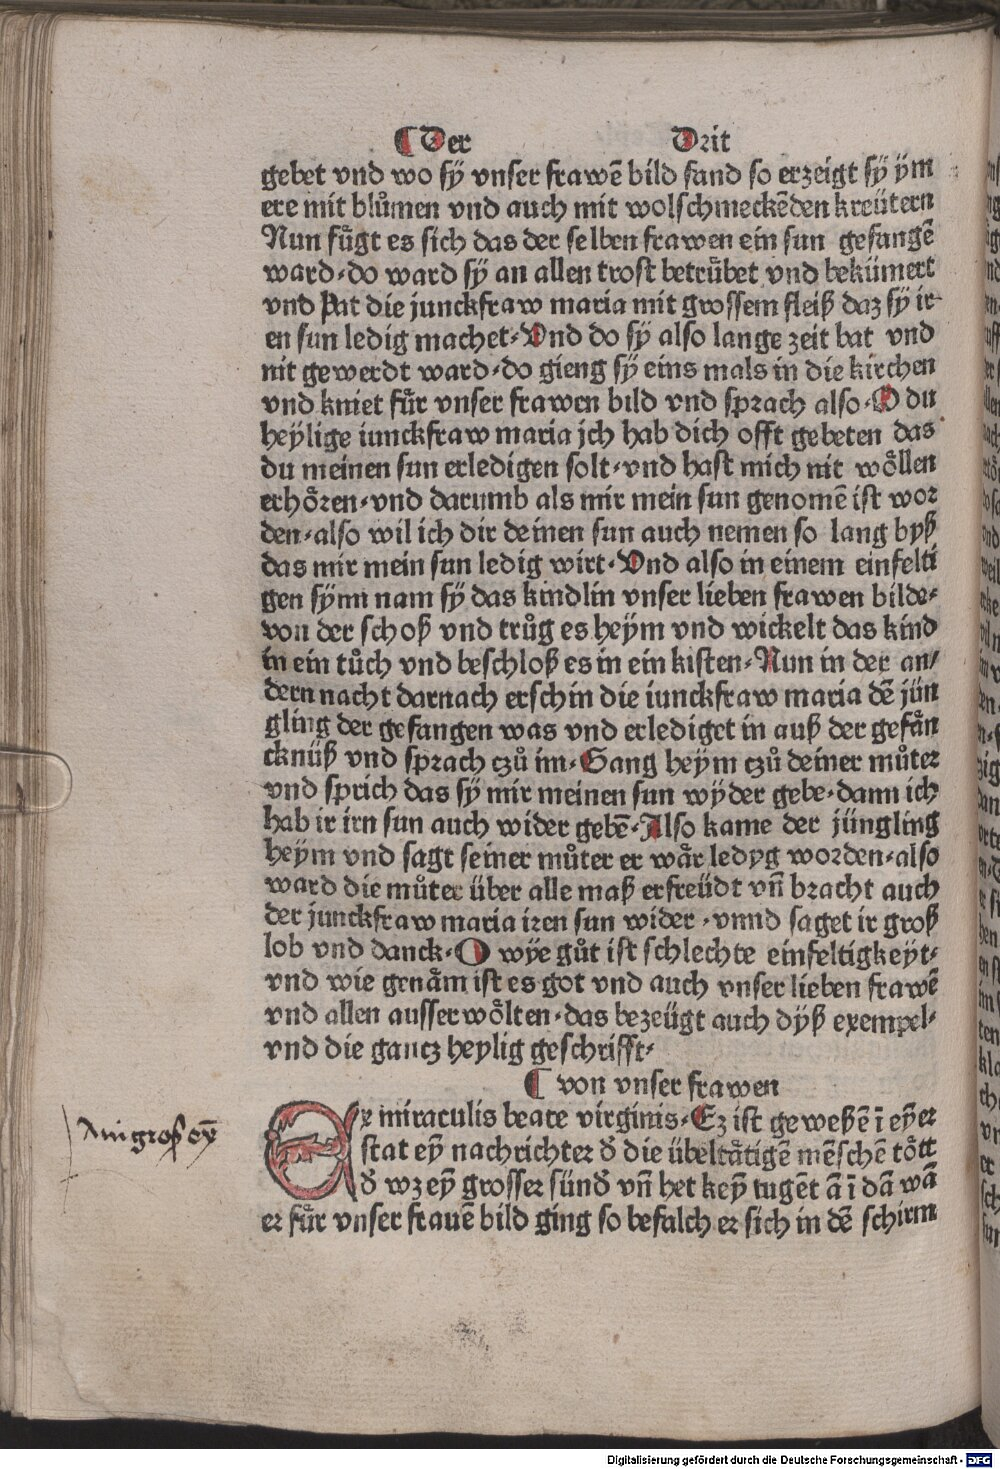 ¶ Der Drit
gebet vnd wo sÿ vnser frawē bild fand so erzeigt sÿ ÿm
ere mit blůmen vnd auch mit wolschmeckēden kreütern
Nun fůgt es sich das der selben frawen ein sun gefangē
ward⸗do ward sÿ an allen trost betrůbet vnd bekümert
vnd Pat die junckfraw maria mit grossem fleiß daz sÿ ir⸗
en sun ledig machet⸗Vnd do sÿ also lange zeit bat vnd
nit gewerdt ward⸗do gieng sÿ eins mals in die kirchen
vnd kniet fůr vnser frawen bild vnd sprach also⸗O du
heÿlige iunckfraw maria jch hab dich offt gebeten das
du meinen sun erledigen solt⸗vnd hast mich nit wo̊llen
erho̊ren⸗vnd darumb als mir mein sun genomē ist wor
den⸗also wil ich dir deinen sun auch nemen so lang byß
das mir mein sun ledig wirt⸗Vnd also in einem einfelti
gen sÿnn nam sÿ das kindlin vnser lieben frawen bilde⸗
von der schoß vnd trůg es heÿm vnd wickelt das kind
in ein tůch vnd beschloß es in ein kisten⸗Nun in der an/
dern nacht darnach erschin die iunckfraw maria dē jün
gling der gefangen was vnd erlediget in auß der gefån
cknüß vnd sprach czů im⸗Gang heÿm czů deiner můter
vnd sprich das sÿ mir meinen sun wÿder gebe⸗dann ich
hab ir irn sun auch wider gebē⸗Also kame der jüngling
heÿm vnd sagt seiner můter er wår ledyg worden⸗also
ward die můter über alle maß erfreüdt vn̄ bracht auch
der junckfraw maria iren sun wider⸗vnnd saget ir groß
lob vnd danck⸗O wÿe gůt ist schlechte einfeltigkeÿt⸗
vnd wie genåm ist es got vnd auch vnser lieben frawē
vnd allen ausserwo̊lten⸗das bezeügt auch dÿß exempel⸗
vnd die gancz heylig geschrifft⸗
¶ von vnser frawen
Ex miraculis beate virginis⸗Ez ist geweßē ī eÿer
stat eȳ nachrichter d̄ die übeltåtigē mēschē to̊tt
d̄ wz eȳ grosser sünd̄ vn̄ het keȳ tugēt ā ī dā wā
er fůr vnser frauē bild ging so befalch er sich in dē schirm
Digitalisierung gefördert durch die Deutsche Forschungsgemeinschaft - DFG